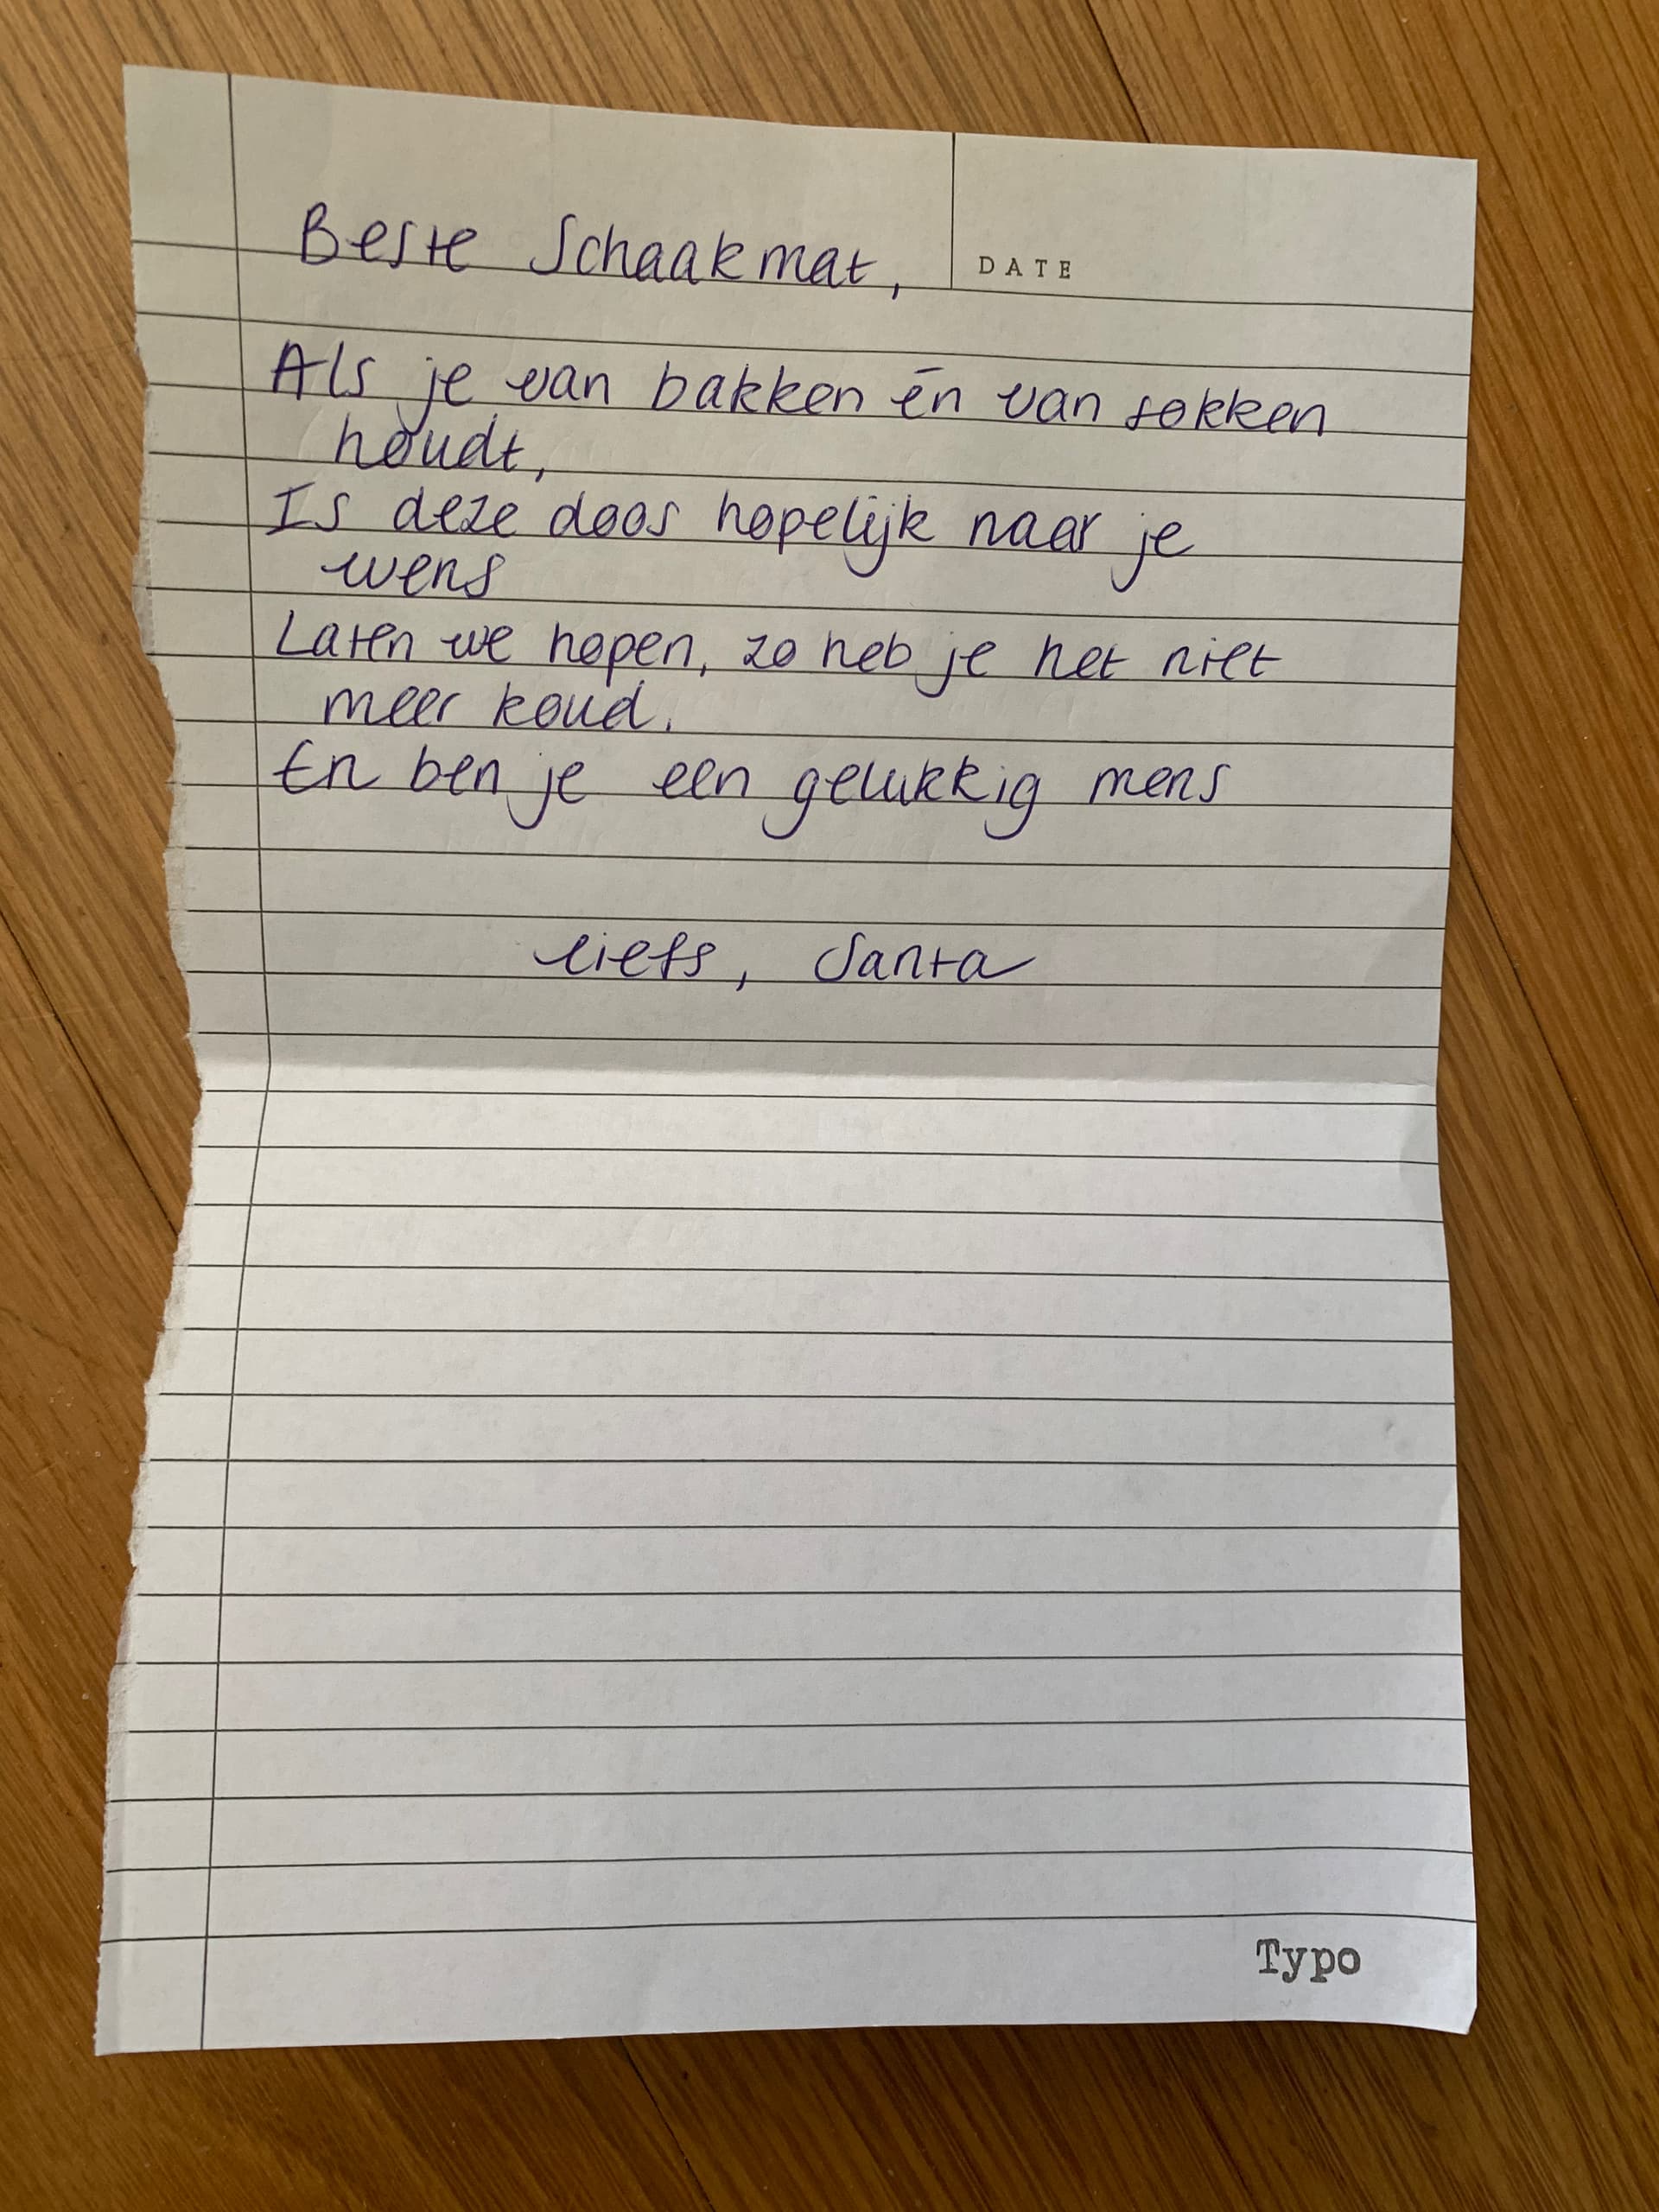 Beste Schaakmat,
DATE
Als je van bakken én van sokken
houdt,
Is deze doos hopelijk naar je
wens
Laten we hopen, zo heb je het niet
meer koud.
En ben je een gelukkig mens
liefs, Santa
Typo